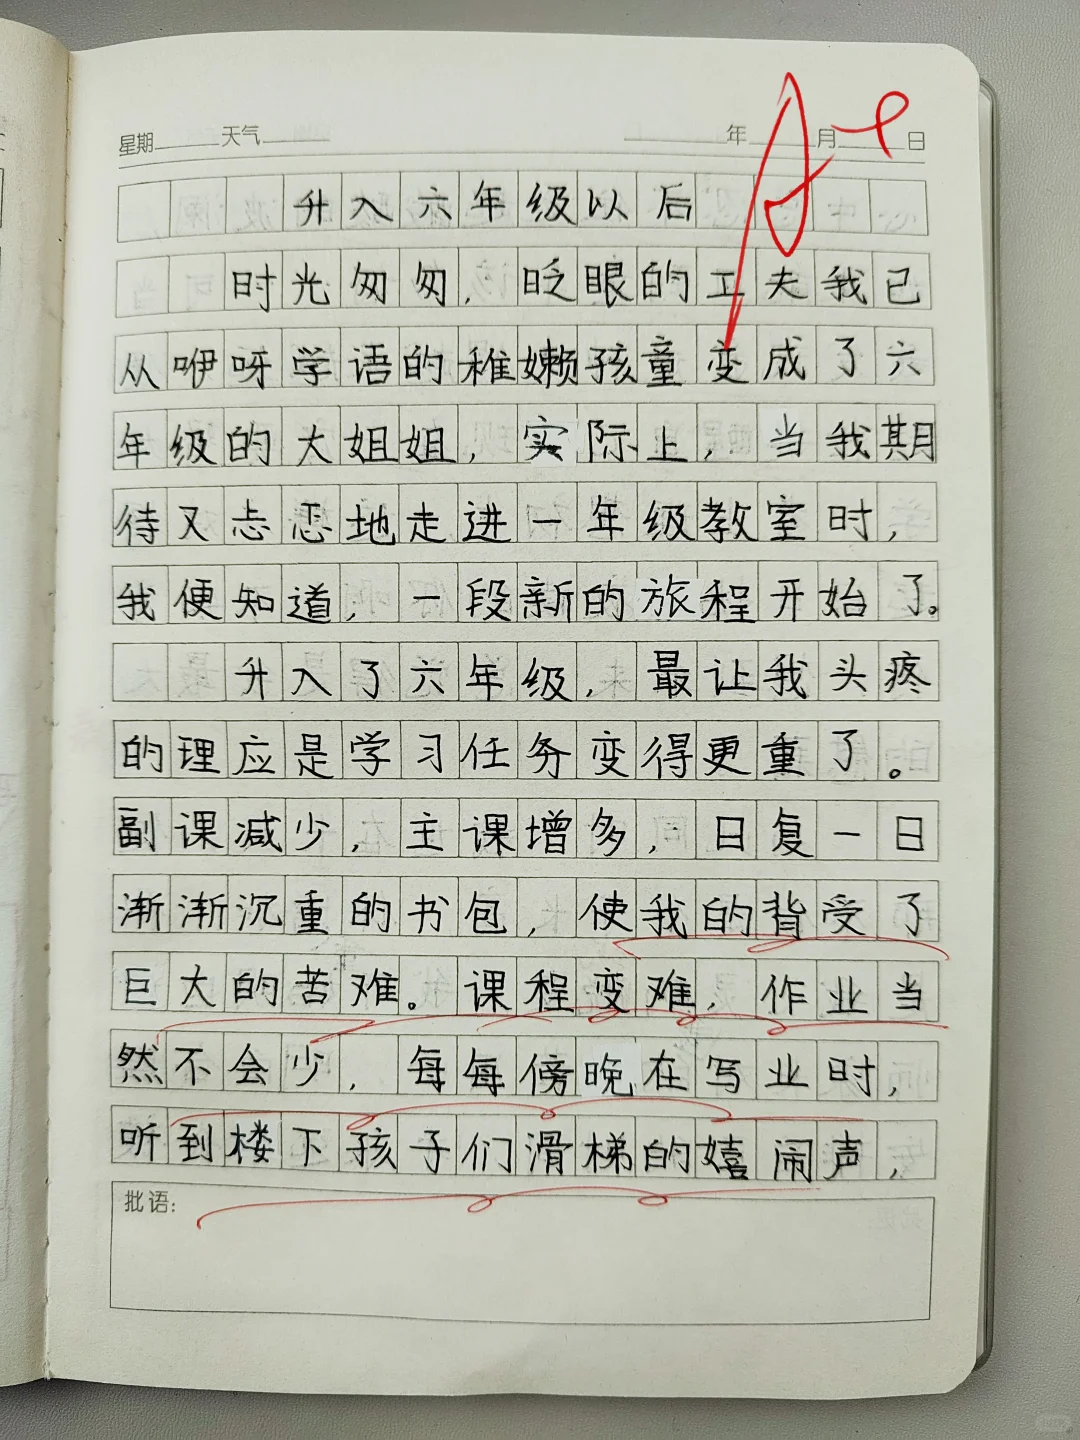 星期 天气 年 月 日
升入六年级以后
时光匆匆，眨眼的工夫我已
从咿呀学语的稚嫩孩童变成了六
年级的大姐姐，实际上，当我期
待又忐忑地走进一年级教室时，
我便知道，一段新的旅程开始了。
升入了六年级，最让我头疼
的理应是学习任务变得更重了。
副课减少，主课增多，日复一日
渐渐沉重的书包，使我的背受了
巨大的苦难。课程变难，作业当
然不会少，每每傍晚在写业时，
听到楼下孩子们滑梯的嬉闹声，
批语：